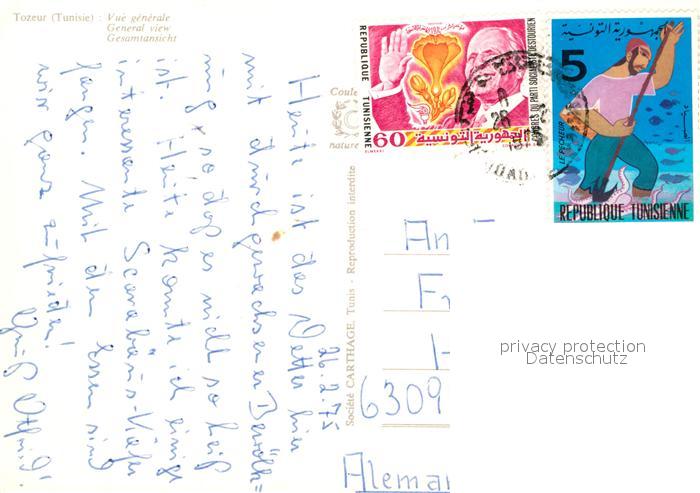 Tozeur (Tunisie) : Vue générale
General view
Gesamtansicht
26.2.75
Heute ist das Wetter hier
mit durchgewachsener Bewölk=
ung, so daß es nicht so heiß
ist. Heute konnte ich einige
interessante Scarabäus-Käfer
fangen. Mit dem Essen sind
wir ganz zufrieden!
Gruß
Coule
nature
Société CARTHAGE, Tunis - Reproduction interdite
REPUBLIQUE TUNISIENNE
60
الجمهورية التونسية
5
الجمهورية التونسية
LE PECHEUR
REPUBLIQUE TUNISIENNE
An
Fr
H
6309
Alema
privacy protection
Datenschutz